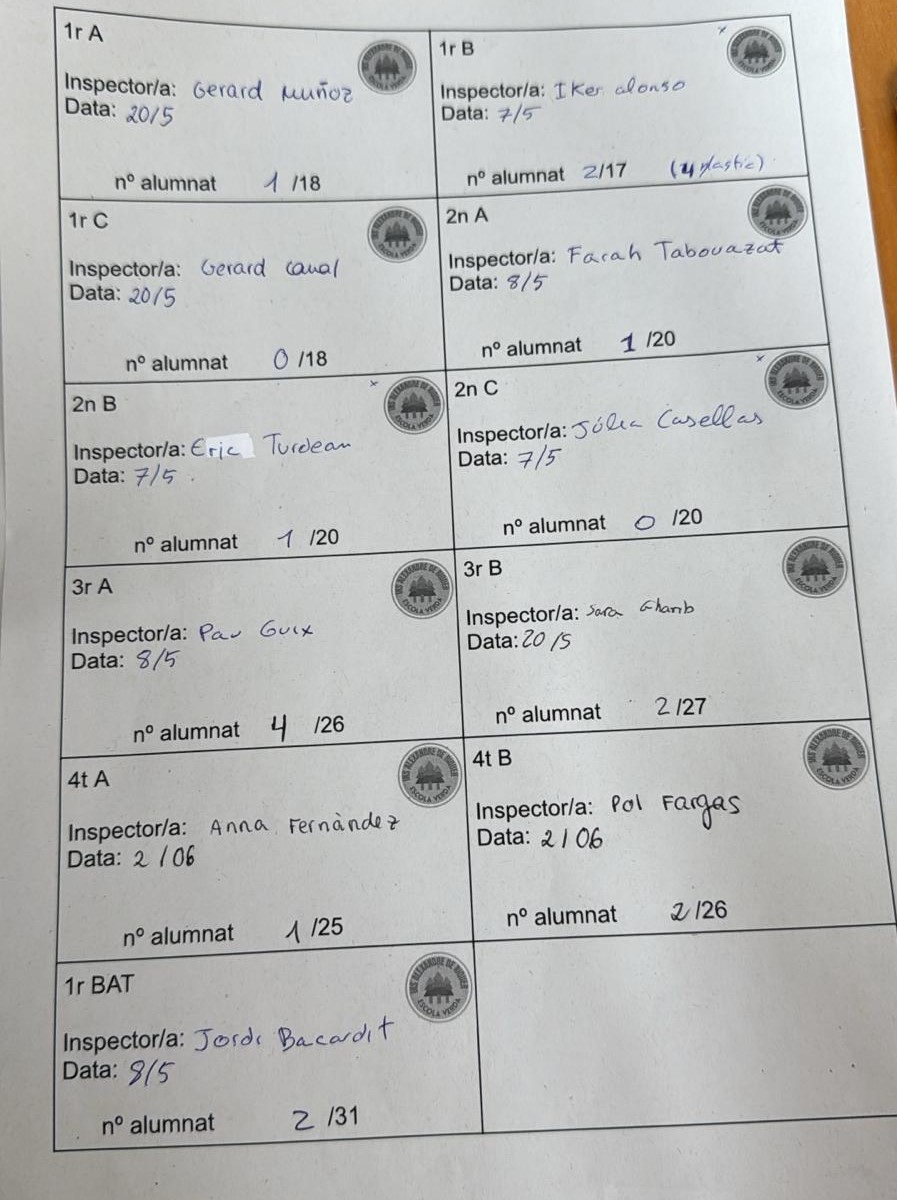 1r A
Inspector/a: Gerard Muñoz
Data: 20/5
nº alumnat 1 /18
1r B
Inspector/a: Iker alonso
Data: 7/5
nº alumnat 2/17 (4 plastic)
1r C
Inspector/a: Gerard Canal
Data: 20/5
nº alumnat 0 /18
2n A
Inspector/a: Farah Tabouazat
Data: 8/5
nº alumnat 1 /20
2n B
Inspector/a: Eric Turdean
Data: 7/5
nº alumnat 1 /20
2n C
Inspector/a: Júlia Casellas
Data: 7/5
nº alumnat 0 /20
3r A
Inspector/a: Pau Guix
Data: 8/5
nº alumnat 4 /26
3r B
Inspector/a: Sara Gharib
Data: 20/5
nº alumnat 2 /27
4t A
Inspector/a: Anna Fernàndez
Data: 2/06
nº alumnat 1 /25
4t B
Inspector/a: Pol Fargas
Data: 2/06
nº alumnat 2 /26
1r BAT
Inspector/a: Jordi Bacardit
Data: 8/5
nº alumnat 2 /31
INS ALEXANDRE DE RIQUER
ESCOLA VERDA